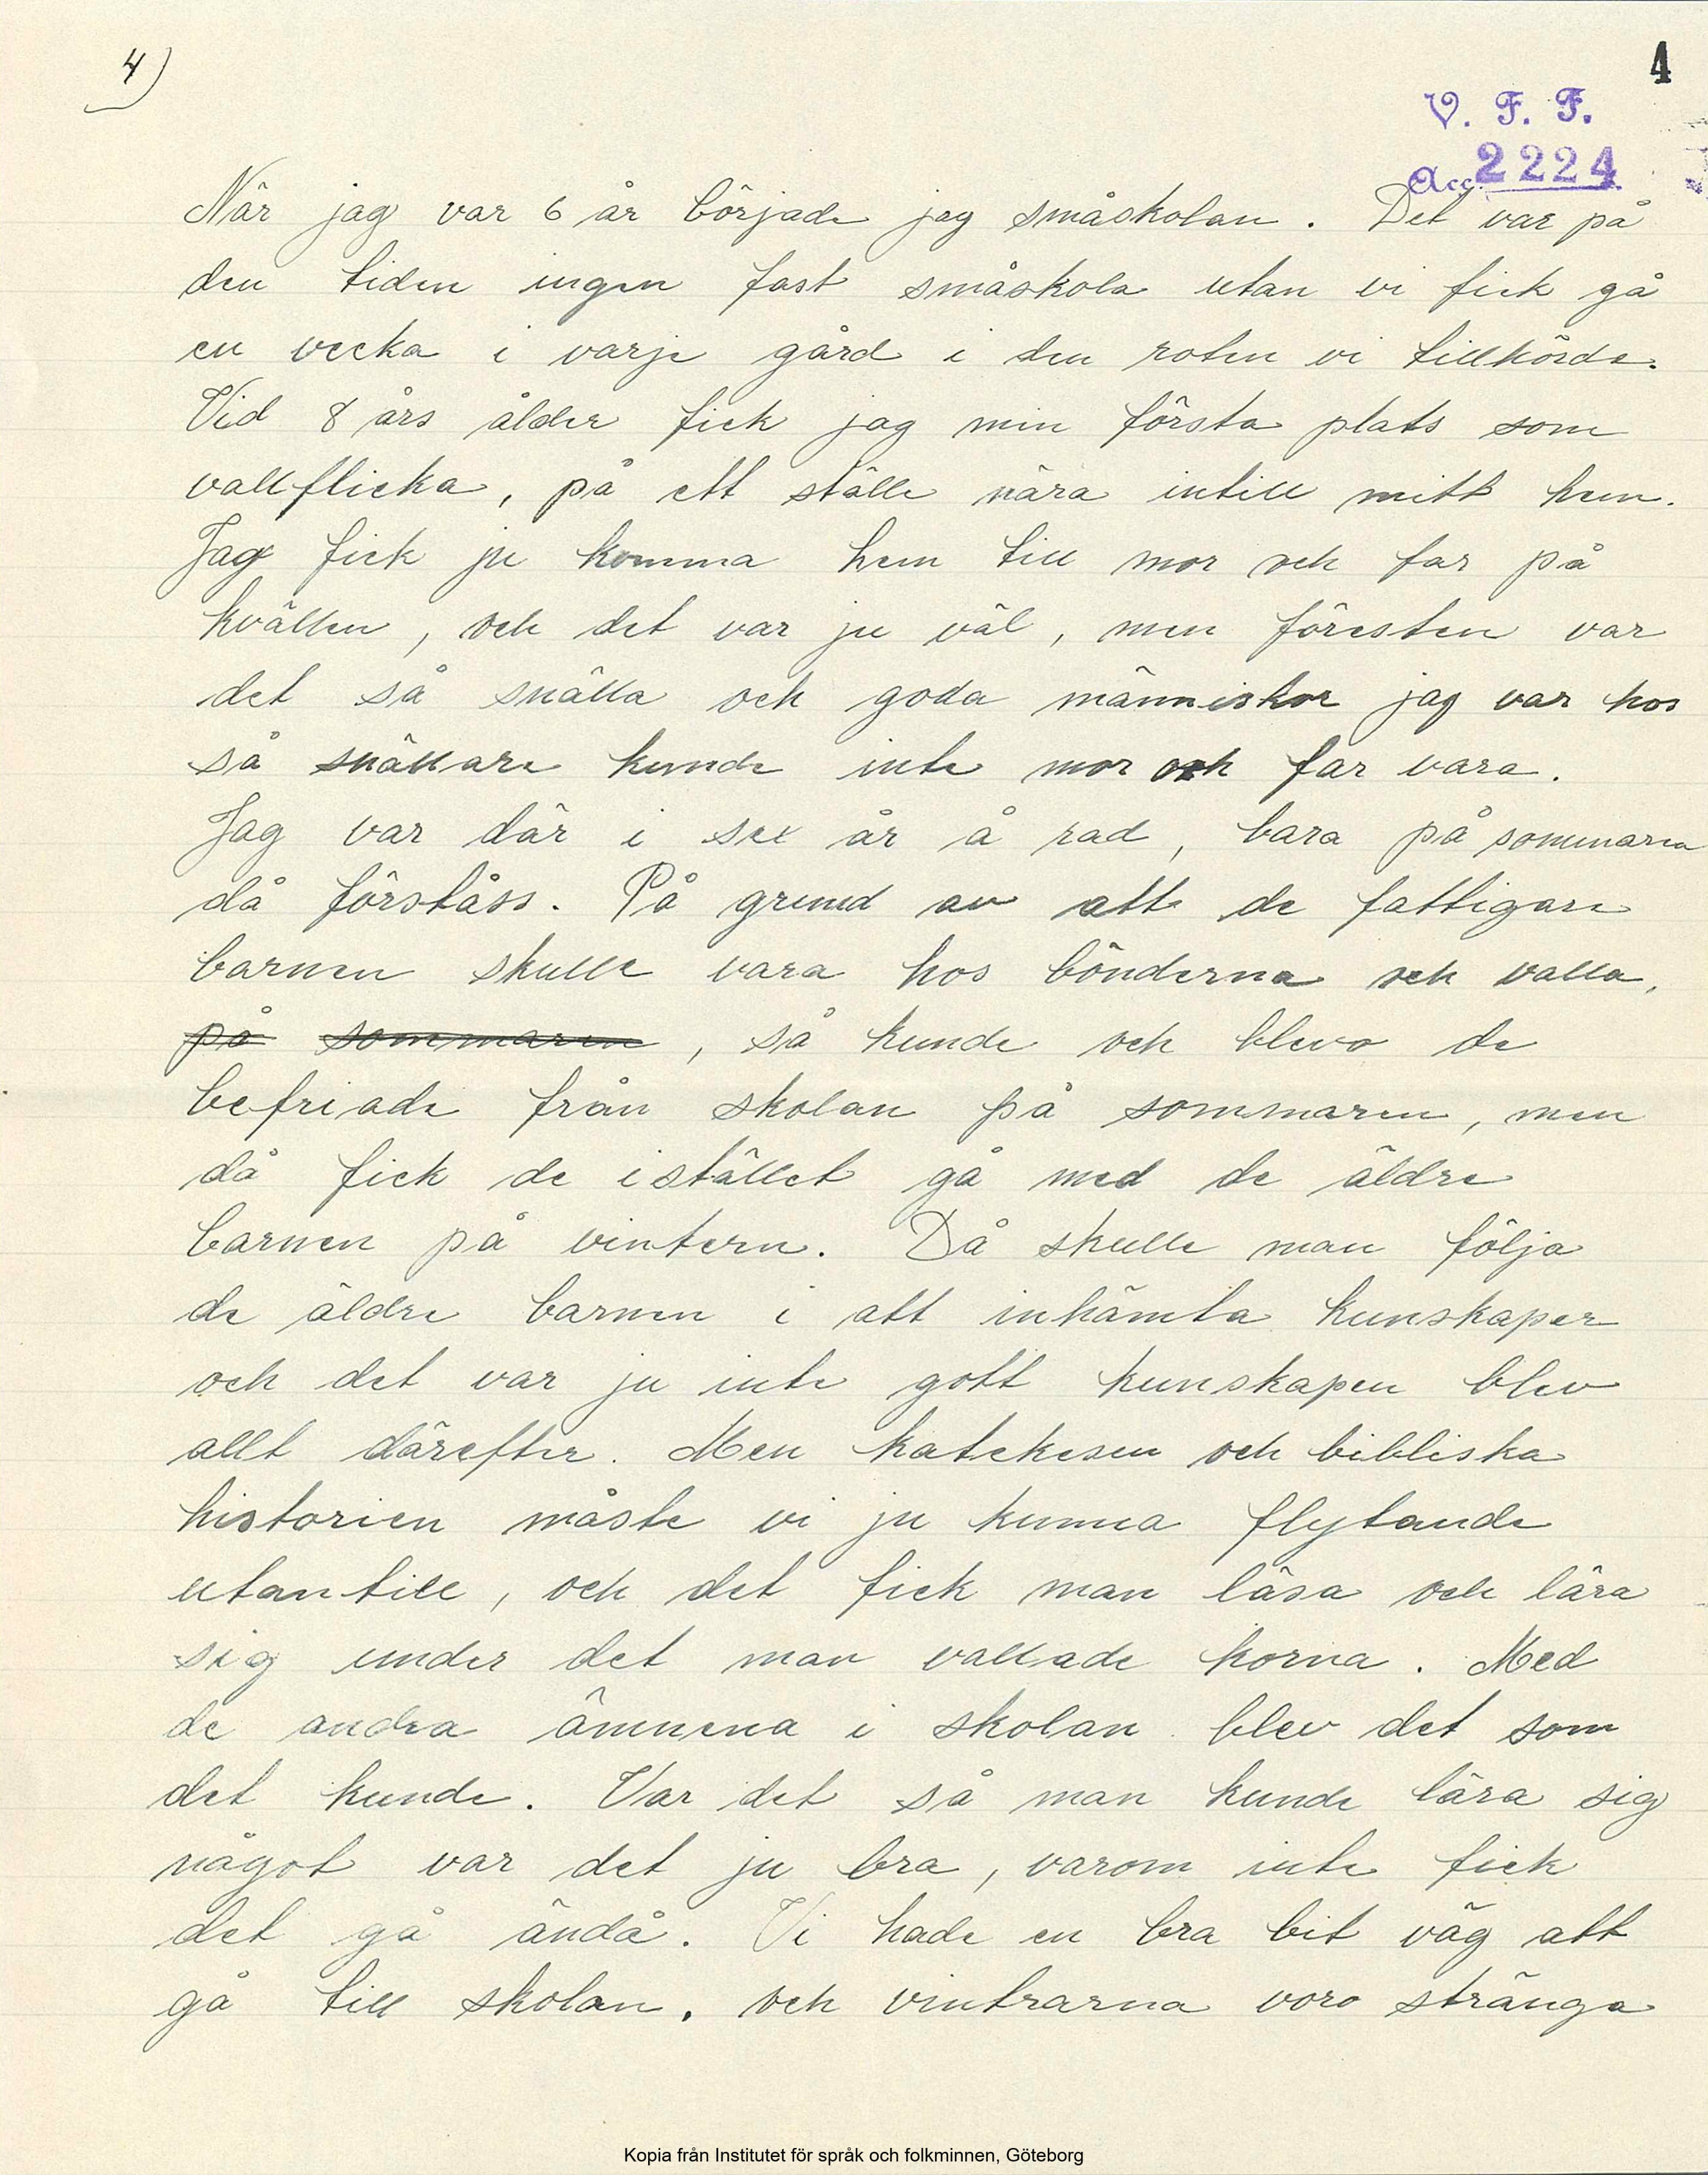 4)
4
V. F. F.
Acc. 2224
När jag var 6 år började jag småskolan. Det var på
den tiden ingen fast småskola utan vi fick gå
en vecka i varje gård i den roten vi tillhörde.
Vid 8 års ålder fick jag min första plats som
vallflicka, på ett ställe nära intill mitt hem.
Jag fick ju komma hem till mor och far på
kvällen, och det var ju väl, men föresten var
det så snälla och goda människor jag var hos
så snällare kunde inte mor och far vara.
Jag var där i sex år å rad, bara på sommaren
då förståss. På grund av att de fattigare
barnen skulle vara hos bönderna och valla,
på sommaren, så kunde och blevo de
befriade från skolan på sommaren, men
då fick de istället gå med de äldre
barnen på vintern. Då skulle man följa
de äldre barnen i att inhämta kunskaper
och det var ju inte gott kunskapen blev
allt därefter. Men katekesen och bibliska
historien måste vi ju kunna flytande
utantill, och det fick man läsa och lära
sig under det man vallade korna. Med
de andra ämnena i skolan blev det som
det kunde. Var det så man kunde lära sig
något var det ju bra, varom inte fick
det gå ändå. Vi hade en bra bit väg att
gå till skolan. och vintrarna voro stränga
Kopia från Institutet för språk och folkminnen, Göteborg